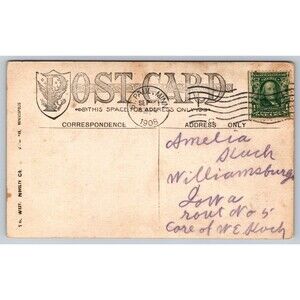 POST CARD
THIS SPACE FOR ADDRESS ONLY
ST. PAUL, MINN.
1908
CORRESPONDENCE
ADDRESS ONLY
Amelia
Koch
Williamsburg
Iowa
rout No 5
Care of W E Koch